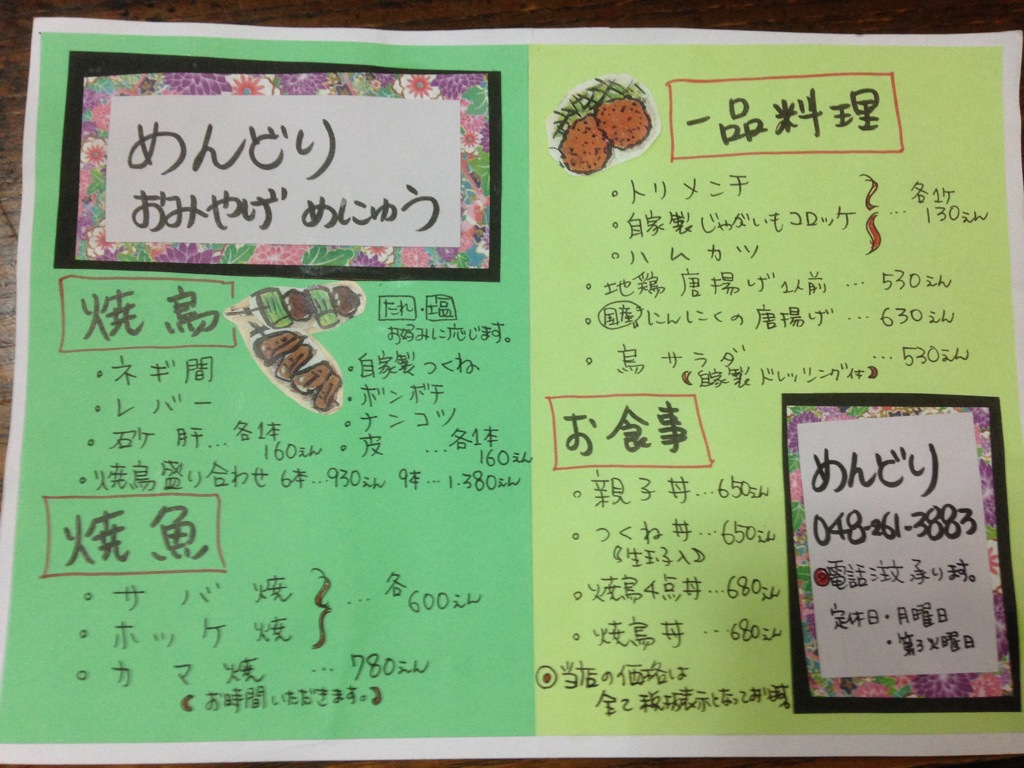 めんどり
おみやげ めにゅう
焼鳥
たれ・塩
お好みに応じます。
・ネギ間
・レバー
・砂ケ肝…各1本
160えん
・自家製つくね
・ボンボチ
・ナンコツ
・皮 …各1本
160えん
・焼鳥盛り合わせ 6本…930えん 9本…1.380えん
焼魚
・サバ焼
・ホッケ焼
…各600えん
・カマ焼 …780えん
(お時間いただきます。)
一品料理
・トリメンチ
・自家製じゃがいもコロッケ
・ハムカツ
…各1ケ
130えん
・地鶏唐揚げ1人前 …530えん
・国産にんにくの唐揚げ …630えん
・鳥サラダ …530えん
(自家製ドレッシング付)
お食事
・親子丼…650えん
・つくね丼…650えん
(生玉子入)
・焼鳥4点丼…680えん
・焼鳥丼…680えん
◎当店の価格は
全て税抜表示となっております。
めんどり
048-261-3883
電話注文承ります。
定休日・月曜日
・第3火曜日